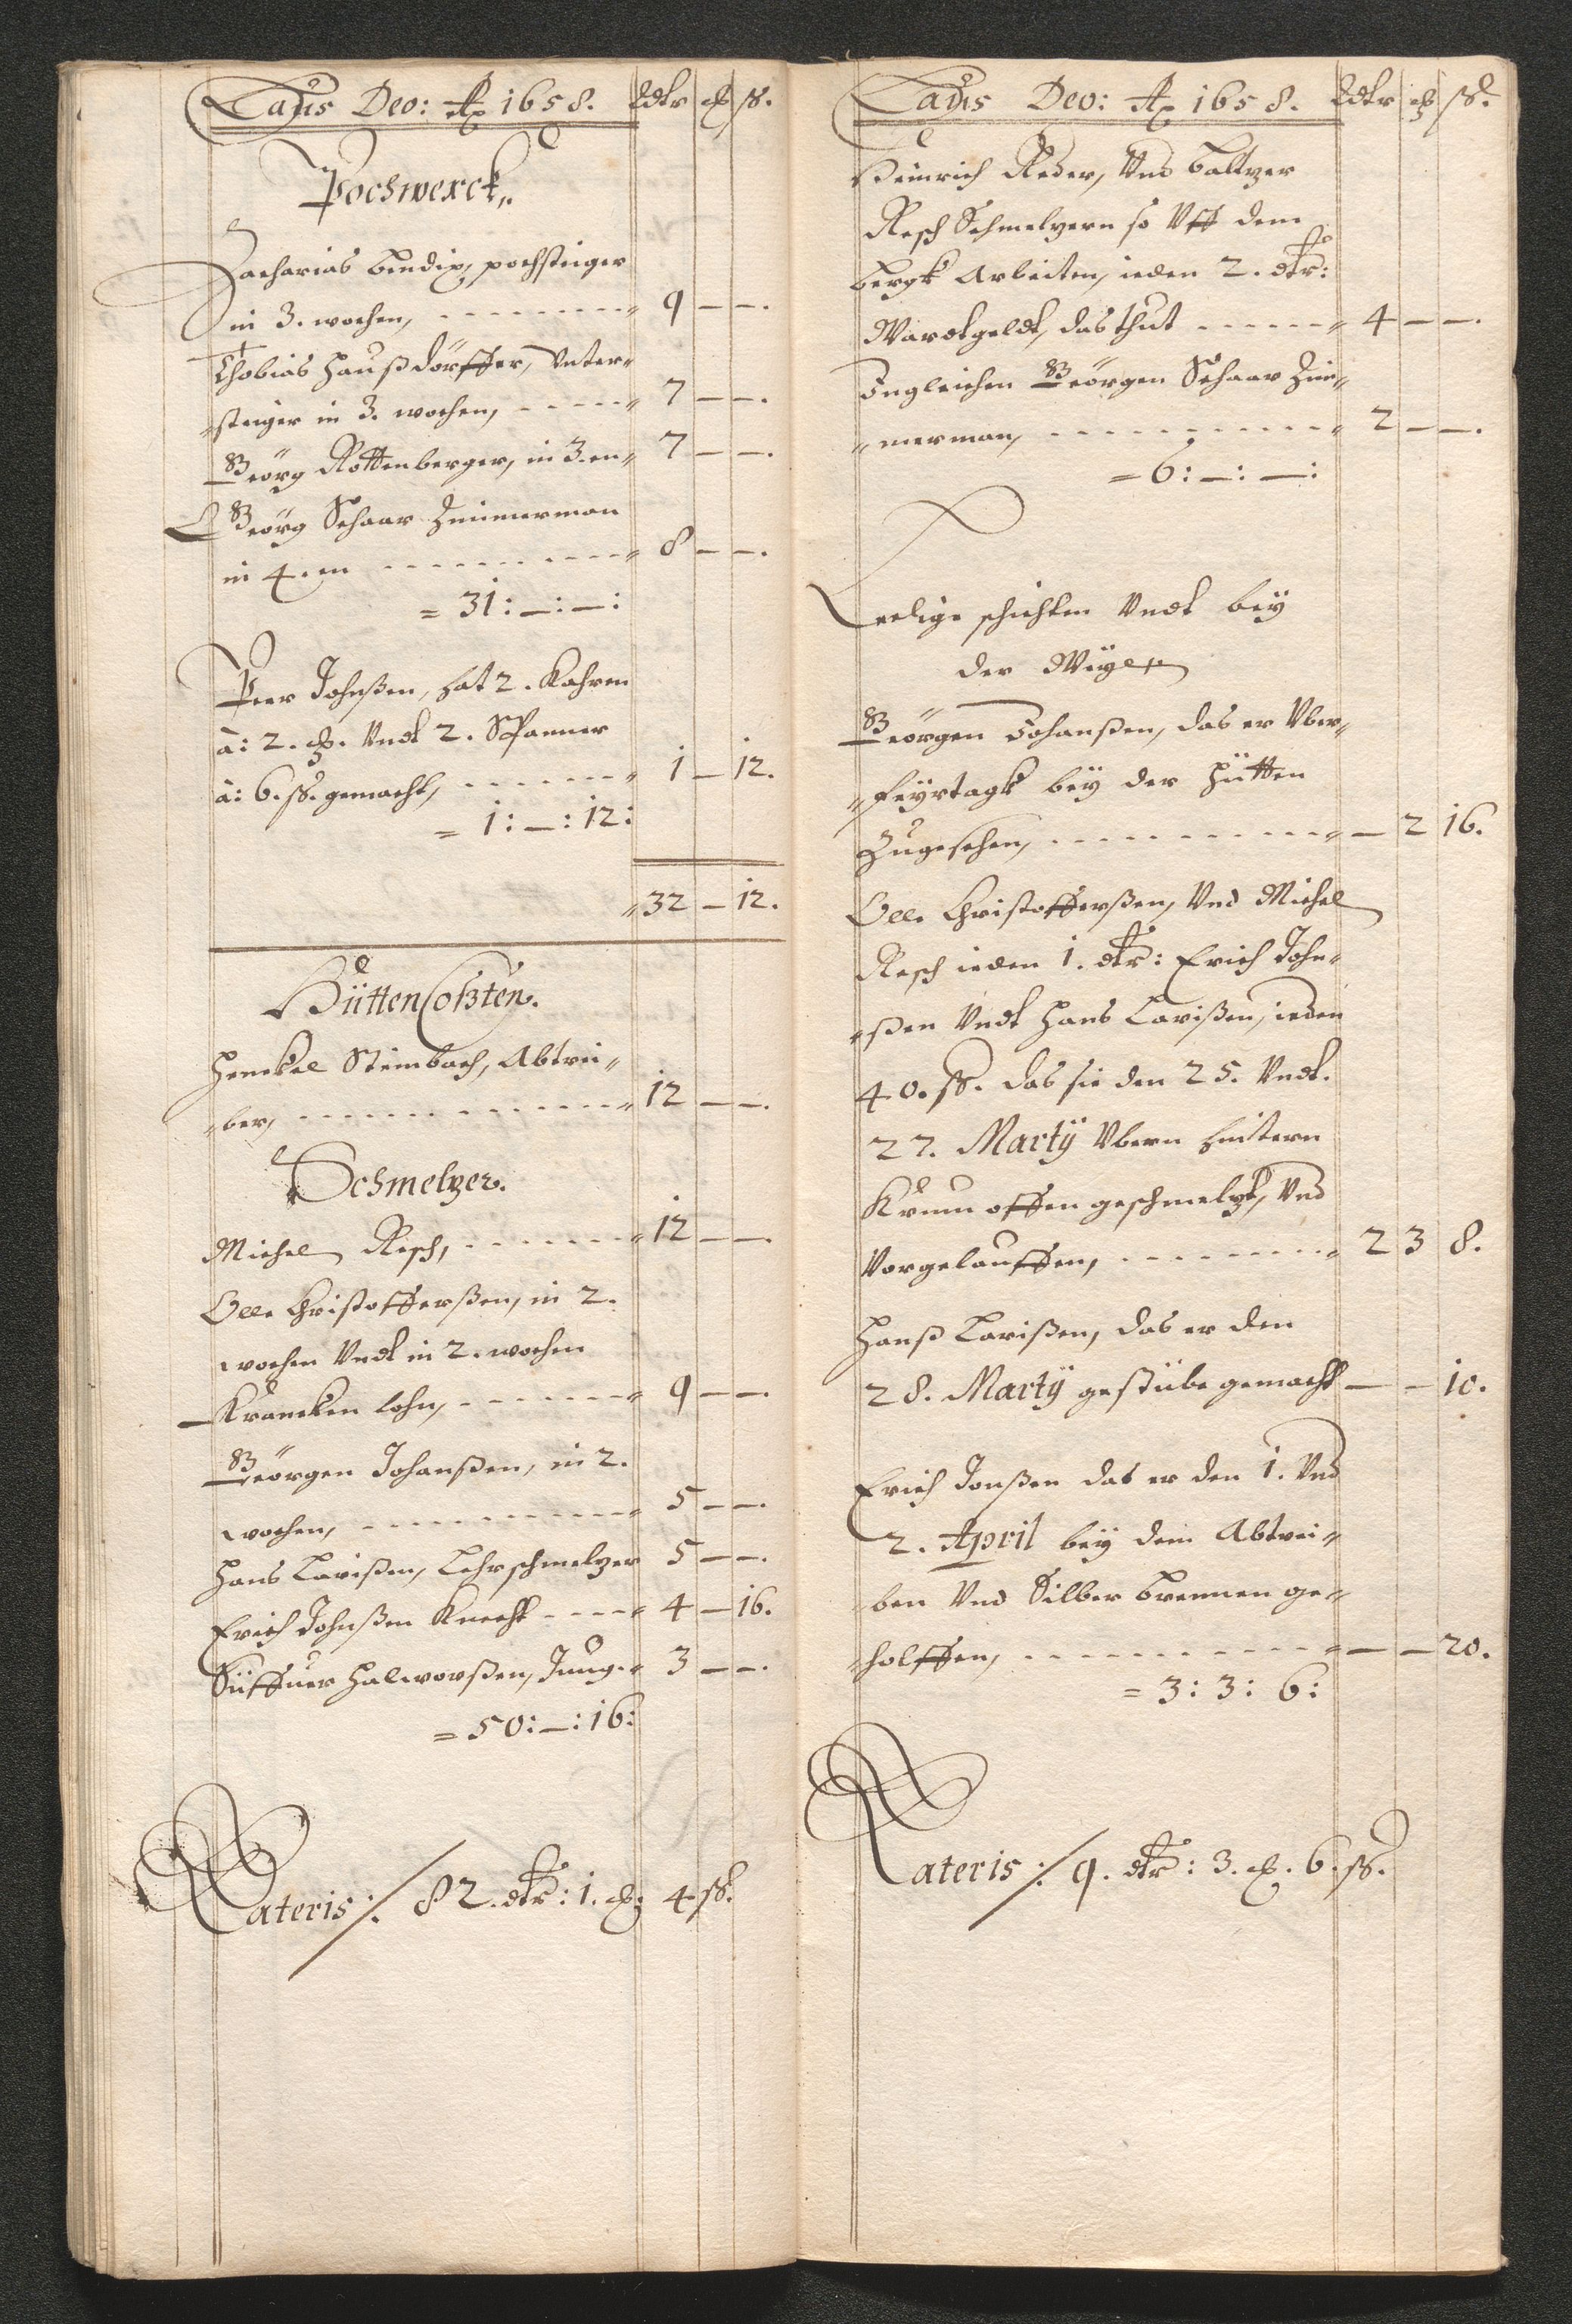 Laus Deo: Ao 1658. Rdtr ℳ ß.
Pochwerck,.
Zacharias Bendix, pochsteiger
in 3. wochen, - - - - - - - - 9 — —.
Thobias Haußdörffer, Unter-
steiger in 3. wochen, - - - - - 7 — —.
Geörg Rottenberger, in 3.en 7 — —.
Geörg Schaar Zimmerman
in 4.en - - - - - - - - - - 8 — —.
= 31: —: —:
Peer Johnßen, hat 2. Kahren
à: 2. ℳ. Undt 2. Spanner
à: 6. ß. gemacht, - - - - - - - 1 — 12.
= 1: —: 12:
32 — 12.
Hütten Coßten.
Henckel Steinbach, Abtrei-
ber, - - - - - - - - - - - 12 — —.
Schmelzer.
Michel Resch, - - - - - - - 12 — —.
Olle Christofferßen, in 2.
wochen Undt in 2. wochen
Krancken lohn, - - - - - - 9 — —.
Geörgen Johanßen, in 2.
wochen, - - - - - - - - - - 5 — —.
Hans Larißen, Lehrschmelzer 5 — —.
Erich Johnßen Knecht - - - - 4 — 16.
Süffuer Halworßen, Jung. 3 — —.
= 50: —: 16:
Lateris: 82. dtr: 1. ℳ: 4 ß.
Laus Deo: Ao 1658. Rdtr ℳ ß.
Heinrich Reder, Und Baltzer
Resch Schmelzern so Uff dem
Bergk Arbeiten, ieden 2. dtr:
Wardtgeldt, das thut - - - - - - 4 — —.
Ingleichen Geörgen Schaar Zim-
merman, - - - - - - - - - - - 2 — —.
= 6: —: —:
Leedige schichten Undt bey
der Weyle
Geörgen Johanßen, das er Uber
Feyrtagk bey der Hütten
Zugesehen, - - - - - - - - - - — 2 16.
Olle Christofferßen, Und Michel
Resch ieden 1. dtr: Erich John-
ßen Undt Hans Larißen, ieden
40. ß. das sie den 25. Undt.
27. Martÿ Ubern hintern
Krum offen geschmelzt, Und
Vorgelauffen, - - - - - - - - - 2 3 8.
Hanß Larißen, das er den
28. Martÿ gestübe gemacht — — 10.
Erich Jonßen das er den 1. Und
2. April bey dem Abtrei-
ben Und Silber brennen ge-
holffen, - - - - - - - - - - - — — 20.
= 3: 3: 6:
Lateris: 9. dtr: 3. ℳ. 6. ß.